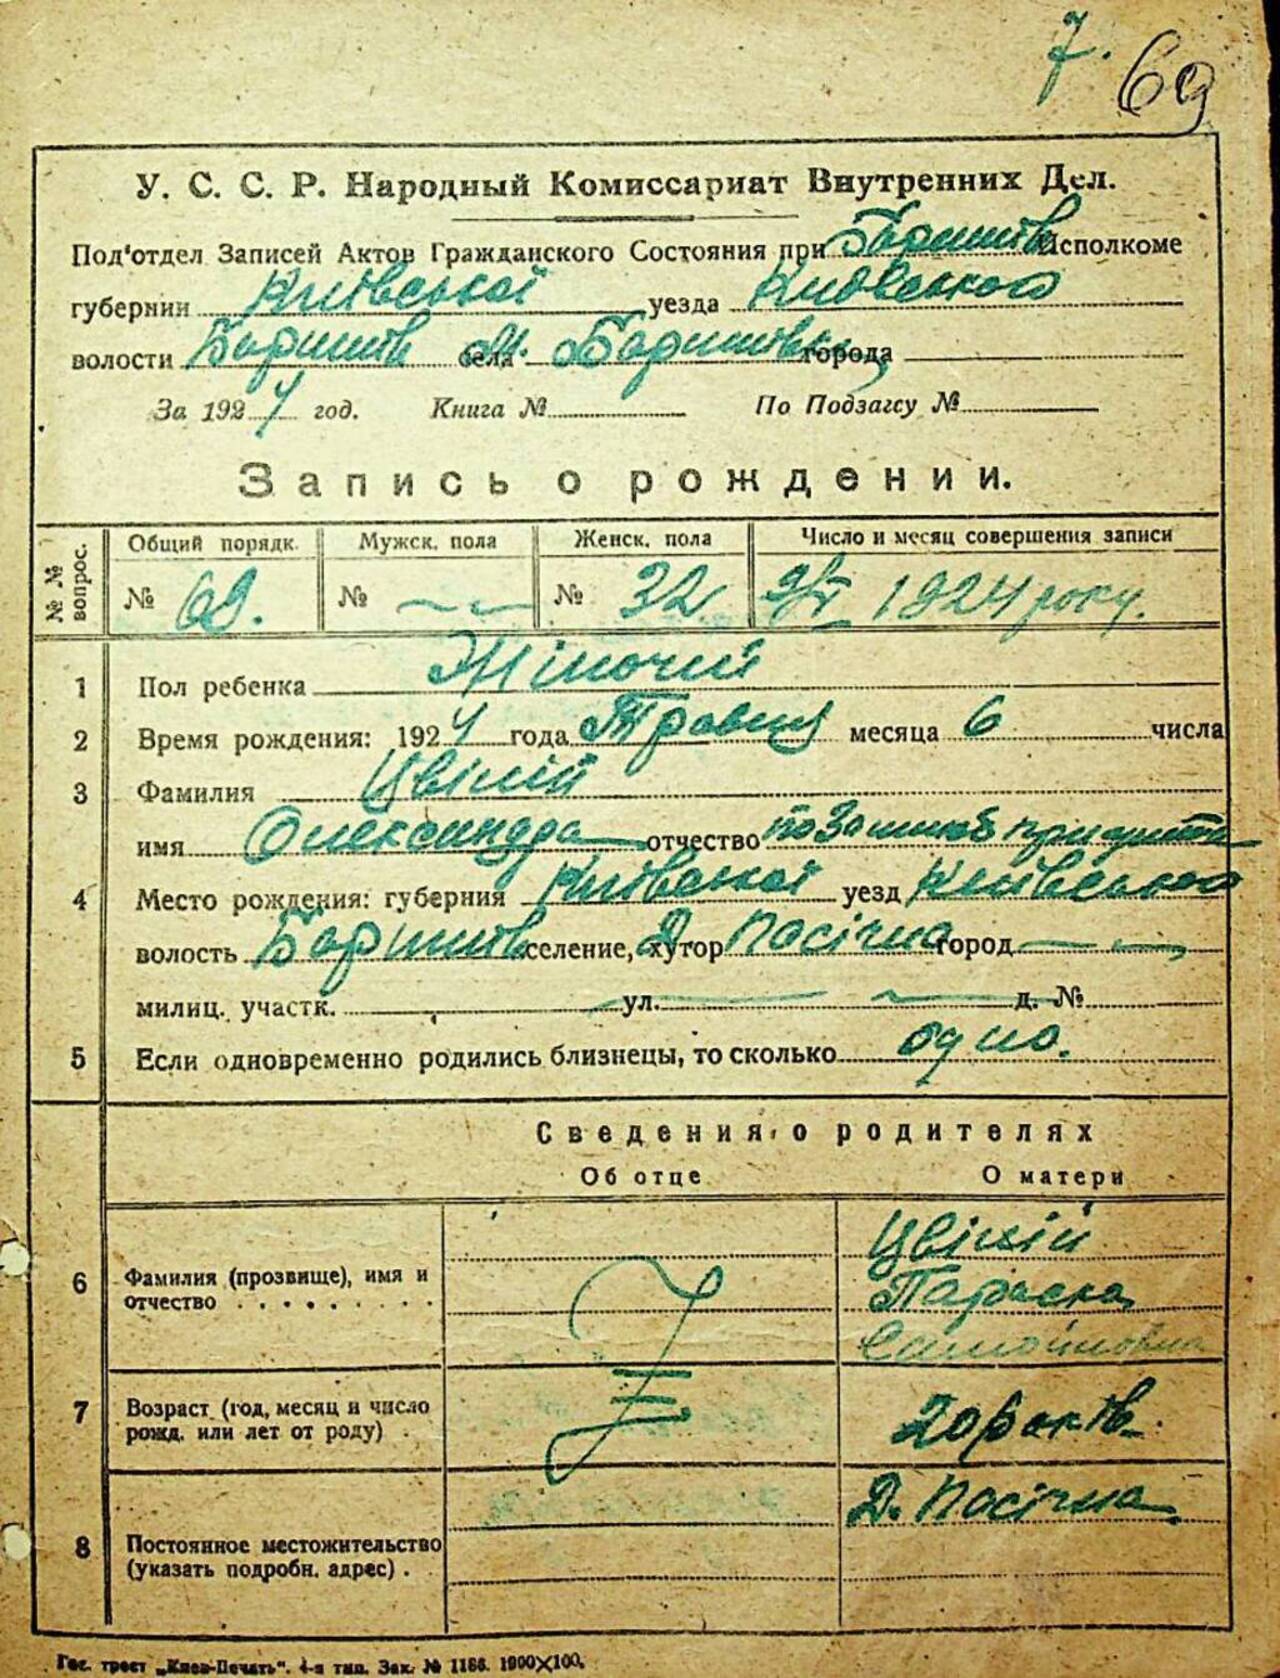 7. 69
У. С. С. Р. Народный Комиссариат Внутренних Дел.
Под'отдел Записей Актов Гражданского Состояния при Баришів Исполкоме
губернии Київської уезда Київського
волости Баришів села М. Баришівка города
За 1924 год. Книга № По Подзагсу №
Запись о рождении.
№ № вопрос. Общий порядк. Мужск. пола Женск. пола Число и месяц совершения записи
№ 69. № № 32 9/V 1924 року.
1 Пол ребенка Жіночий
2 Время рождения: 1924 года Травня месяца 6 числа
3 Фамилия Цвілій
имя Олександра отчество
4 Место рождения: губерния Київської уезд Київського
волость Баришів селение, хутор Д. Пасічна город
милиц. участк. ул. д. №
5 Если одновременно родились близнецы, то сколько одно.
Сведения о родителях
Об отце О матери
Цвілій
6 Фамилия (прозвище), имя и
отчество . . . . . . . . Параска
Самойловна
7 Возраст (год, месяц и число
рожд. или лет от роду) . 20 років.
Д. Пасічна
8 Постоянное местожительство
(указать подробн. адрес) .
Гос. трест „Киев-Печать“. 4-я тип. Зак. № 1186. 1900×100.